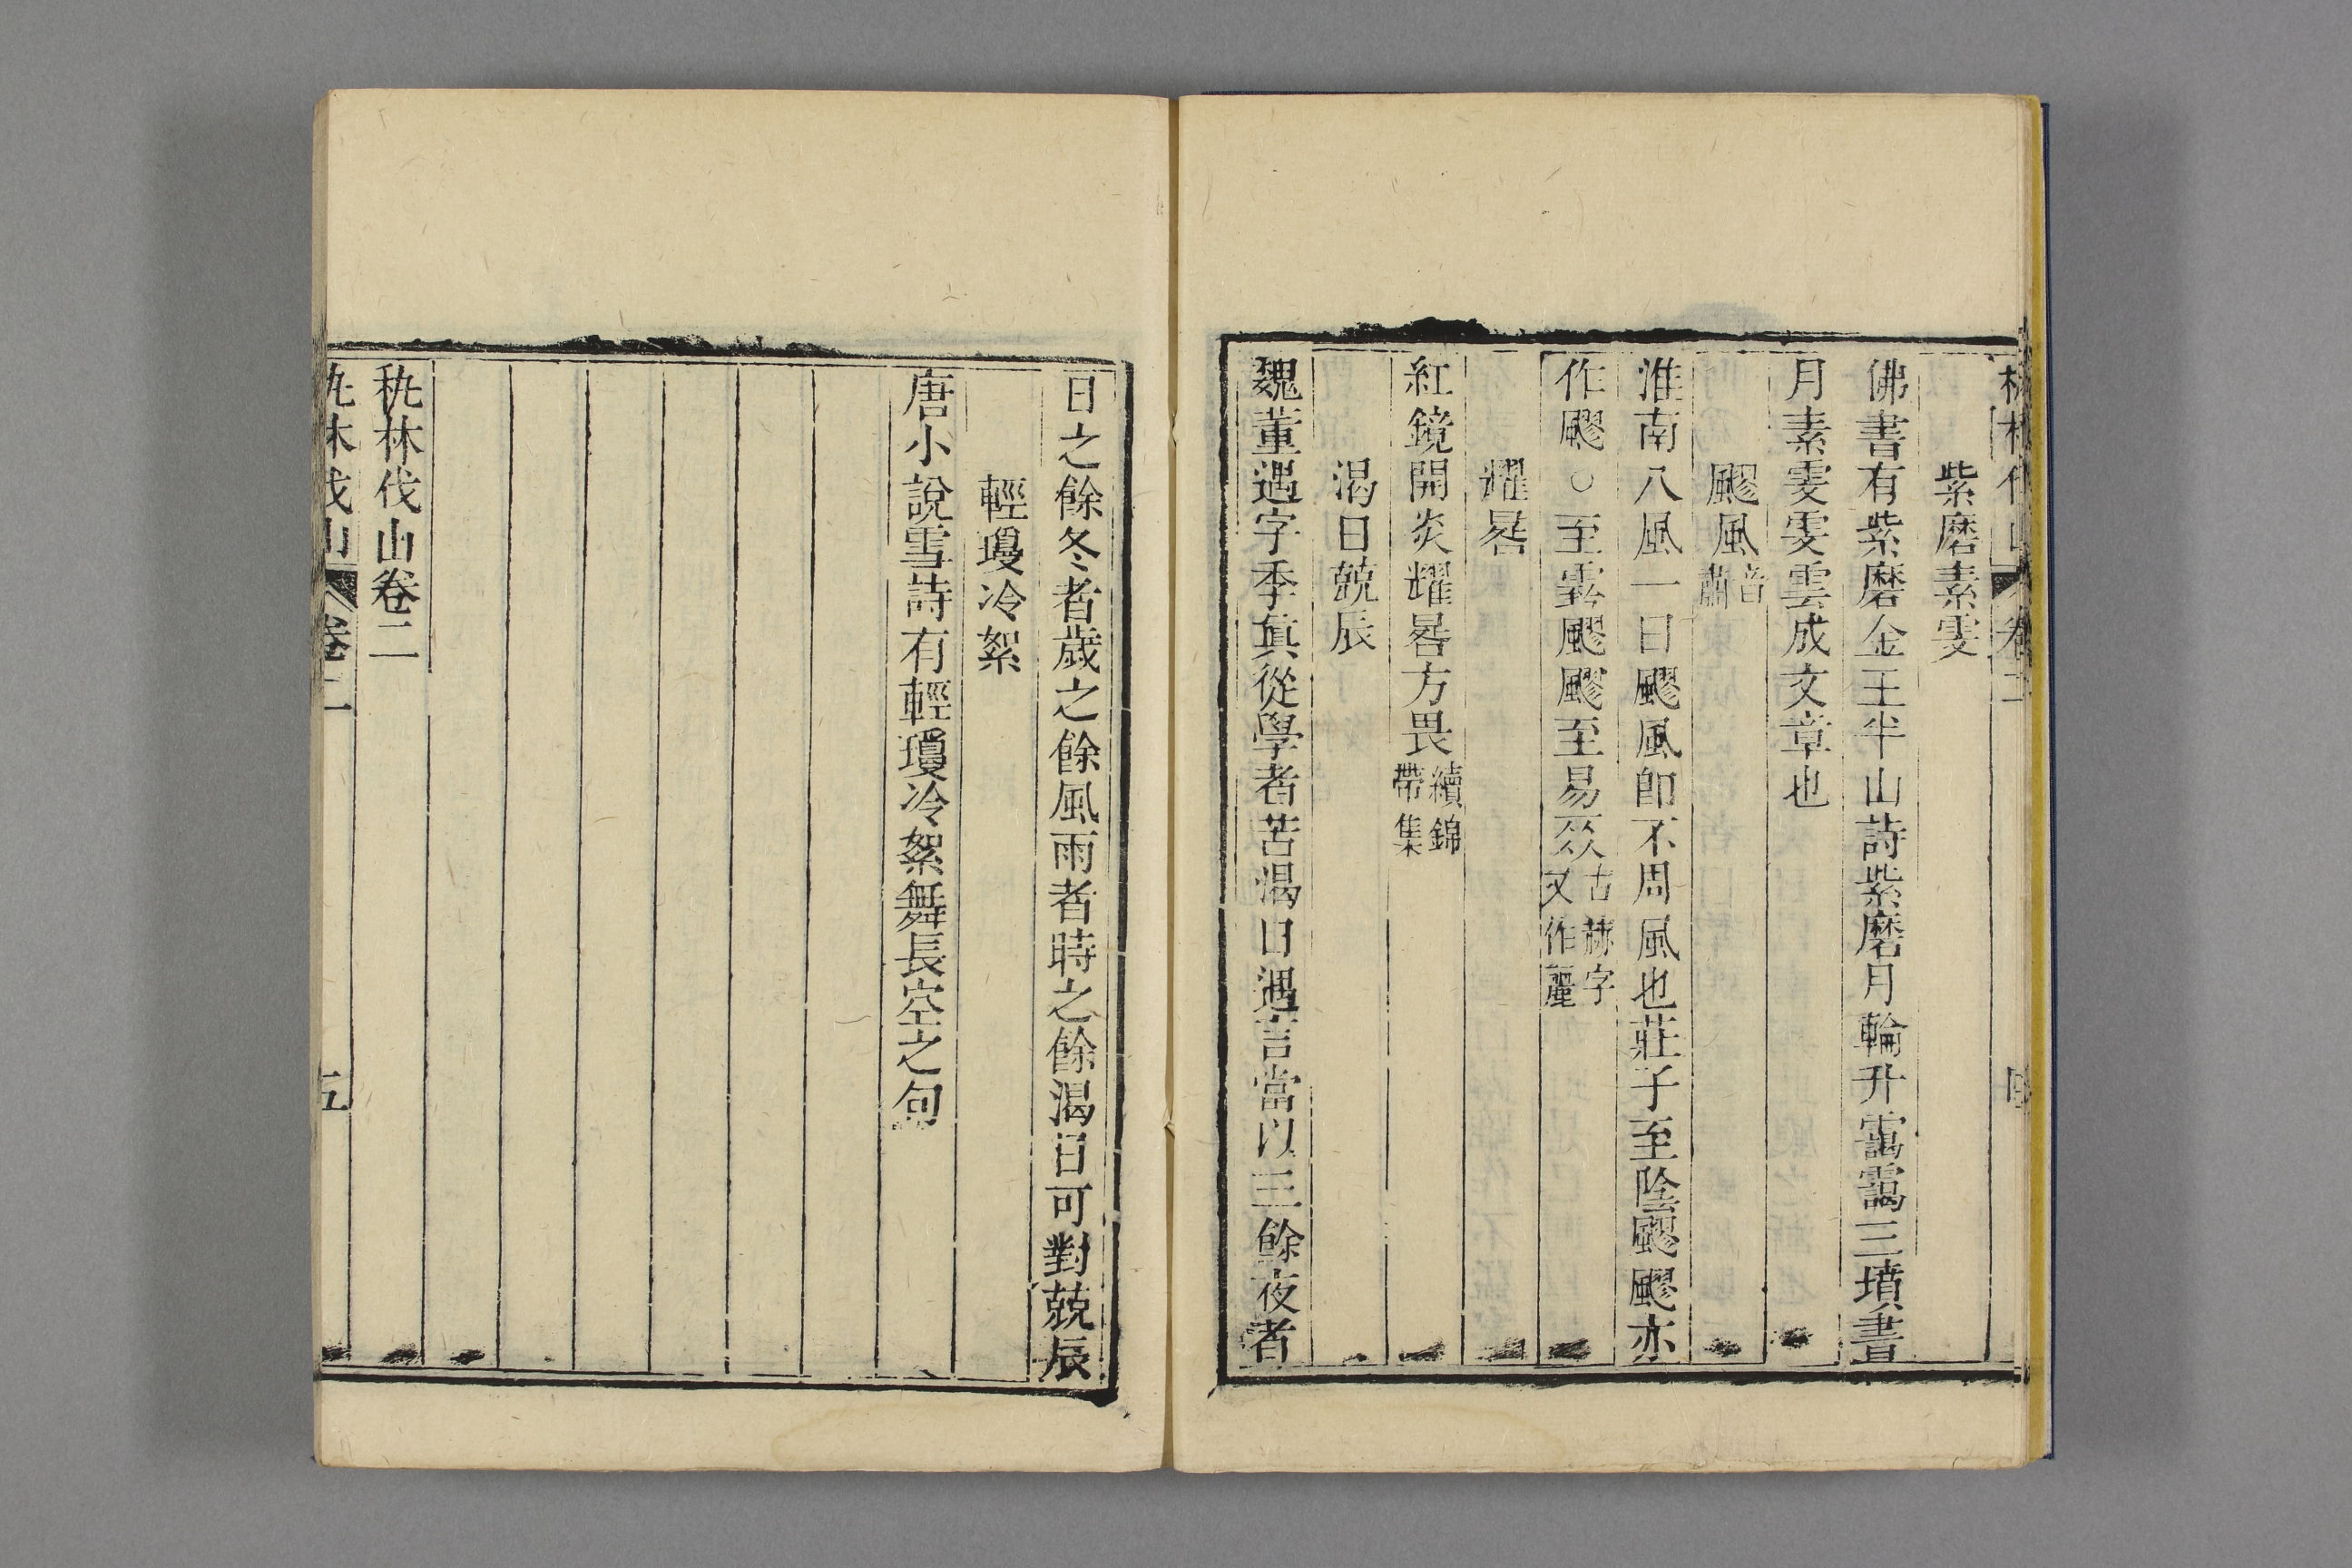 紫磨素雯
佛書有紫磨金王半山詩紫磨月輪升靄靄三墳書
月素雯雯雲成文章也
飂風音肅
淮南八風一曰飂風即不周風也莊子至陰飂飂亦
作飂○至雾飂飂至易焱古赫字又作麗
耀晷
紅鏡開炎耀晷方畏續錦帶集
渴日兢辰
魏董遇字季真從學者苦渴日遇言當以三餘夜者
日之餘冬者歲之餘風雨者時之餘渴日可對兢辰
輕瓊冷絮
唐小說雪詩有輕瓊冷絮舞長空之句
秇林伐山卷二
秇林伐山 卷二 五